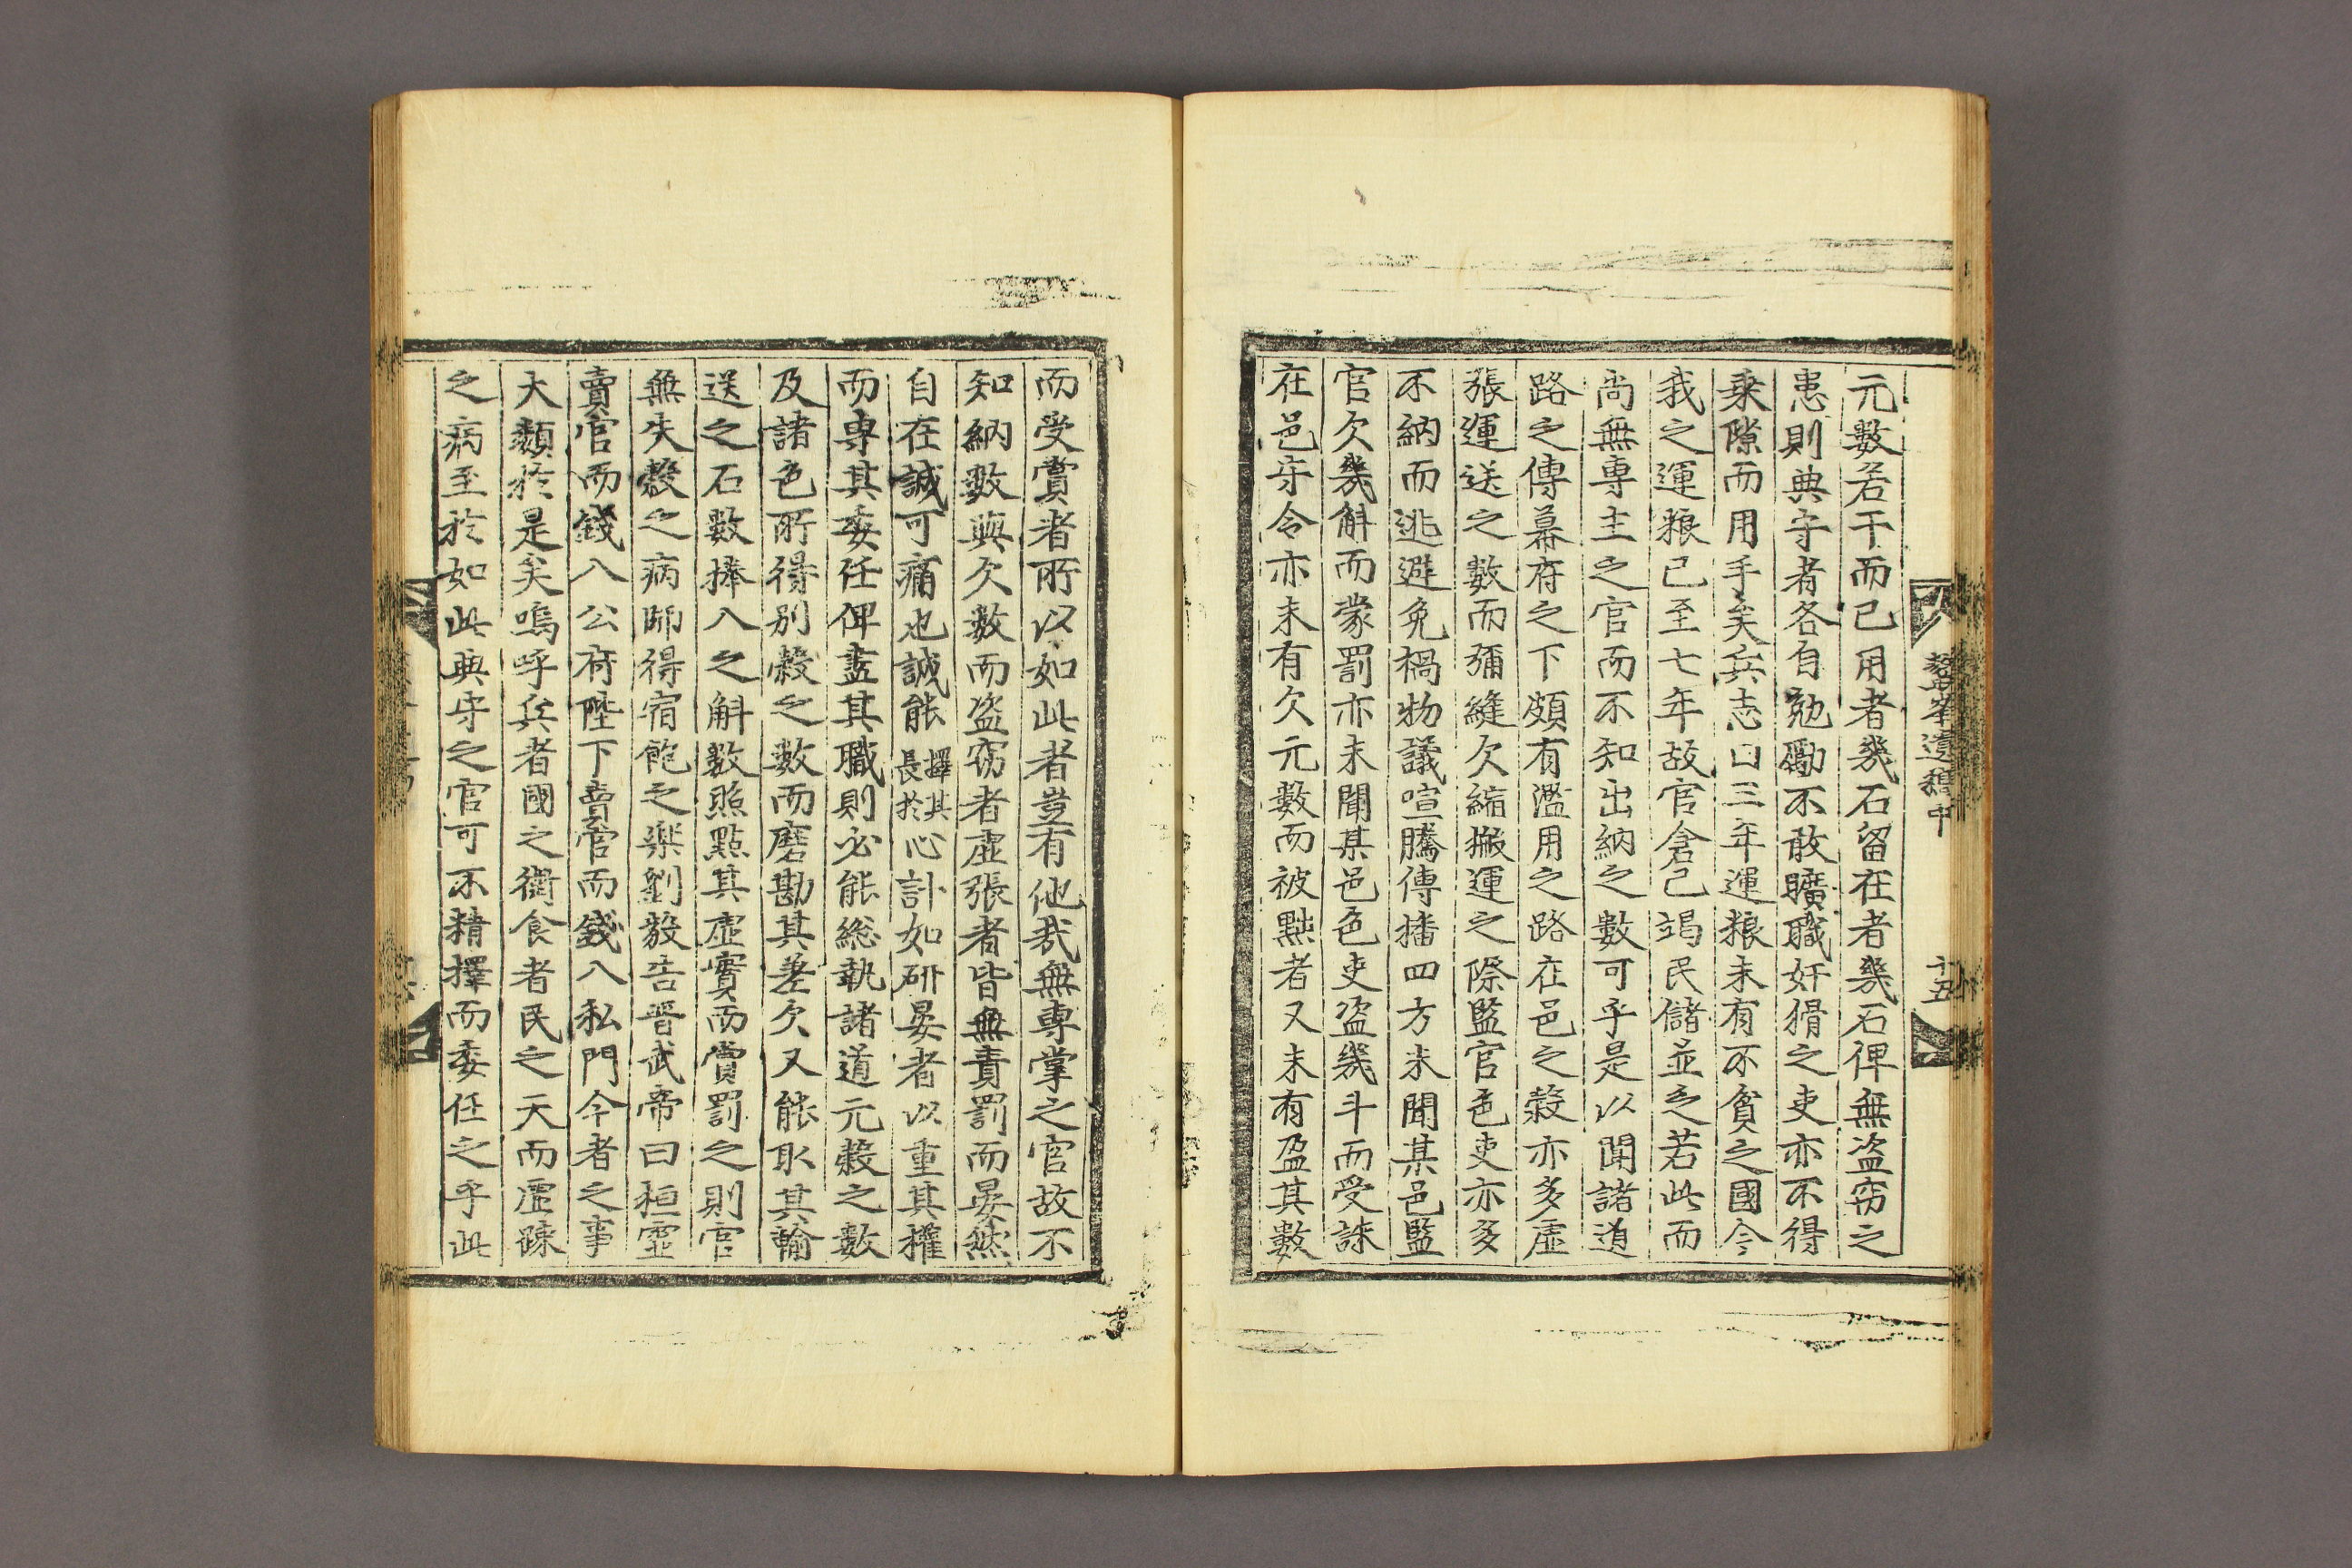 元數若干而已用者幾石留在者幾石俾無盜窃之
患則典守者各自勉勵不敢曠職奸猾之吏亦不得
乗隙而用手矣兵志曰三年運粮未有不貧之國今
我之運粮已至七年故官倉已竭民儲並乏若此而
尚無專主之官而不知出納之數可乎是以聞諸道
路之傳幕府之下頗有濫用之路在邑之穀亦多虛
張運送之數而彌縫欠縮搬運之際監官色吏亦多
不納而逃避免禍物議喧騰傳播四方未聞某邑監
官欠幾斛而蒙罰亦未聞某邑色吏盜幾斗而受誅
在邑守令亦未有欠元數而被㸃者又未有盈其數
遺稿中
十五
而受賞者所以如此者豈有他㦲無專掌之官故不
知納數與欠數而盜窃者虛張者皆無責罰而晏然
自在誠可痛也誠能擇其長於心計如研晏者以重其權
而專其委任俾盡其職則必能総執諸道元穀之數
及諸色所得別穀之數而磨勘其差欠又能取其輸
送之石數捧入之斛數照點其虛實而賞罰之則官
無失穀之病師得宿飽之樂劉毅告晋武帝曰桓靈
賣官而錢入公府陛下賣官而錢入私門今者之事
大類於是矣嗚呼兵者國之衛食者民之天而虛踈
之病至於如此典守之官可不精擇而委任之乎此